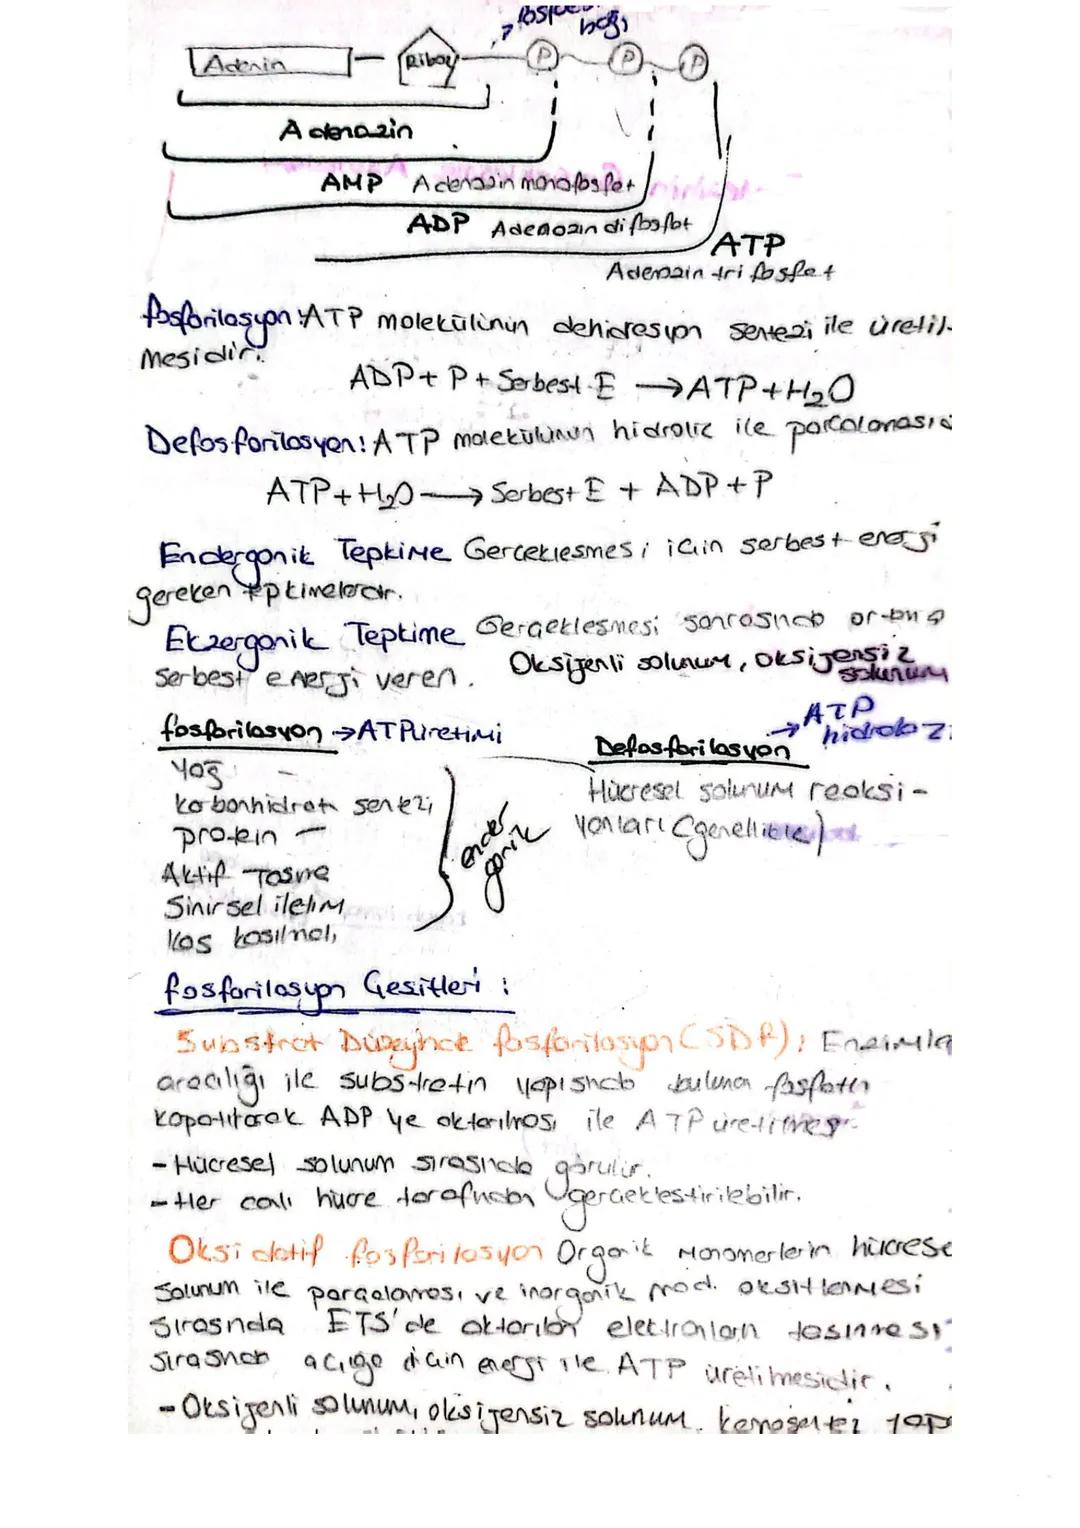 bağı
Adenin
Riboz
P
P
P
Adenozin
AMP Adenozin monofosfat
ADP Adenozin difosfat
ATP
Adenozin trifosfat
fosforilasyon: ATP molekülünün dehidrasyon sentezi ile üretil-
mesidir.
ADP + P + Serbest E → ATP + H₂O
Defosforilasyon: ATP molekülünün hidroliz ile parçalanması
ATP + H₂O → Serbest E + ADP + P
Endergonik Tepkime Gerçekleşmesi için serbest enerji
gereken tepkimelerdir.
Ekzergonik Tepkime Gerçekleşmesi sonrasında ortama
serbest enerji veren. Oksijenli solunum, oksijensiz
solunum
fosforilasyon → ATP üretimi
→ ATP
hidroliz
Defosforilasyon
Yağ -
karbonhidrat sentezi
protein -
Aktif Tasıma
Sinirsel iletim
Kas kasılması
endergonik
Hücresel solunum reaksi-
yonları (genellikle)
fosforilasyon Çeşitleri :
Substrat Düzeyinde fosforilasyon (SDF): Enzimler
aracılığı ile substratın yapısında bulunan fosfatın
kopartılarak ADP ye aktarılması ile ATP üretilmesi
- Hücresel solunum sırasında görülür.
- Her canlı hücre tarafından gerçekleştirilebilir.
Oksidatif fosforilasyon Organik monomerlerin hücrese
solunum ile parçalanması ve inorganik mad. oksitlenmesi
sırasında ETS'de aktarılan elektronların taşınması
sırasında açığa çıkan enerji ile ATP üretilmesidir.
- Oksijenli solunum, oksijensiz solunum, kemosentez yap